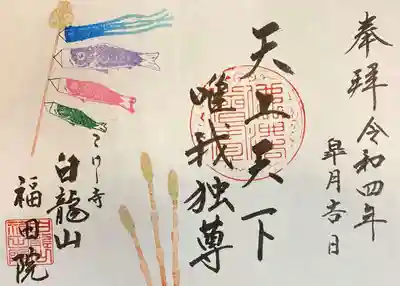 奉拝 令和四年
皐月吉日
天上天下
唯我独尊
こけし寺
白龍山
福田院